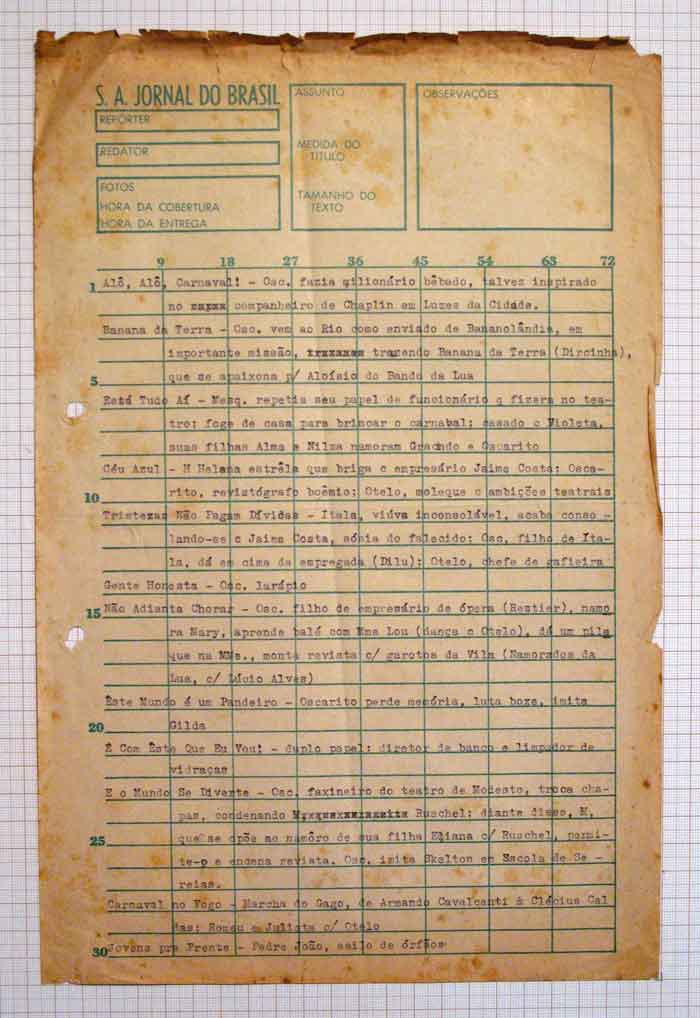 S. A. JORNAL DO BRASIL
REPÓRTER
REDATOR
FOTOS
HORA DA COBERTURA
HORA DA ENTREGA
ASSUNTO
MEDIDA DO
TÍTULO
TAMANHO DO
TEXTO
OBSERVAÇÕES
9 18 27 36 45 54 63 72
1 Alô, Alô, Carnaval! - Osc. fazia milionário bêbado, talvez inspirado
no companheiro de Chaplin em Luzes da Cidade.
Banana da Terra - Osc. vem ao Rio como enviado de Bananolândia, em
importante missão, trazendo Banana da Terra (Dircinha),
5 que se apaixona p/ Aloísio do Bando da Lua
Está Tudo Aí - Mesq. repetia seu papel de funcionário q fizera no tea-
tro: foge de casa para brincar o carnabal: casado c Violeta,
suas filhas Alma e Nilza namoram Grachdo e Oscarito
Céu Azul - H Helena estrêla que briga c empresário Jaime Costa: Osca-
10 rito, revistógrafo boêmio; Otelo, moleque c ambições teatrais
Tristezas Não Pagam Dívidas - Ítala, viúva inconsolável, acaba conso -
lando-se c Jaime Costa, sósia do falecido: Osc, filho de Íta-
la, dá em cima da empregada (Dilu): Otelo, chefe de gafieira
Gente Honesta - Osc. larápio
15 Não Adianta Chorar - Osc. filho de empresário de ópera (Restier), namo
ra Mary, aprende balé com Mme Lou (dança c Otelo), dá um
que na MMe., monta revista c/ garotos da Vila (Namorados da
Lua, c/ Lúcio Alves)
Êste Mundo é um Pandeiro - Oscarito perde memória, luta boxe, imita
20 Gilda
É Com Êste Que Eu Vou! - duplo papel: diretor de banco e limpador de
vidraças
E o Mundo Se Diverte - Osc. faxineiro do teatro de Modesto, troca cha-
pas, condenando Ruschel: diante disso, M,
25 que se opõe ao namôro de sua filha Eliana c/ Ruschel, permi-
te-o e encena revista. Osc. imita Skelton em Escola de Se -
reias.
Carnaval no Fogo - Marcha do Gago, de Armando Cavalcanti & Clécius Cal
das: Romeu e Julieta c/ Otelo
30 Jovens pra Frente - Padre João, asilo de órfãos